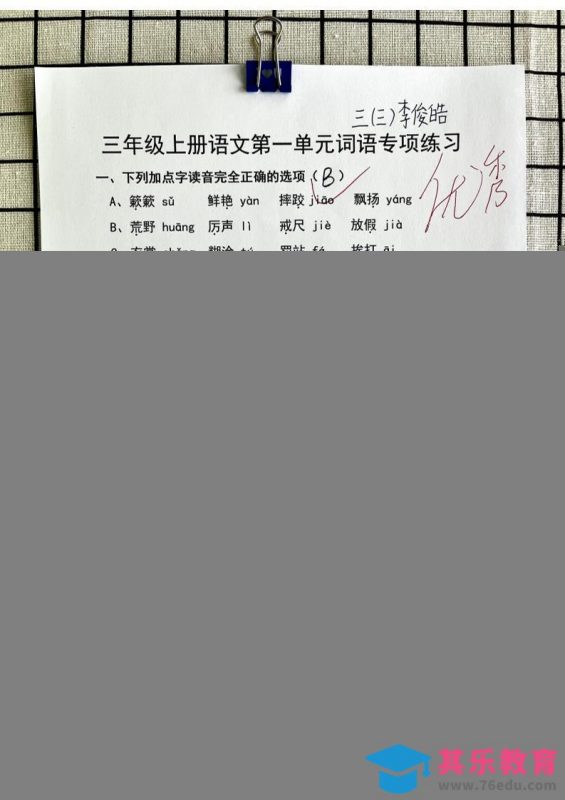 三(三)李俊皓
三年级上册语文第一单元词语专项练习
优秀
一、下列加点字读音完全正确的选项（B）
A、簌簌 sǔ 鲜艳 yàn 摔跤 jiāo 飘扬 yáng
B、荒野 huāng 厉声 lì 戒尺 jiè 放假 jià
其乐教育
www.76edu.com